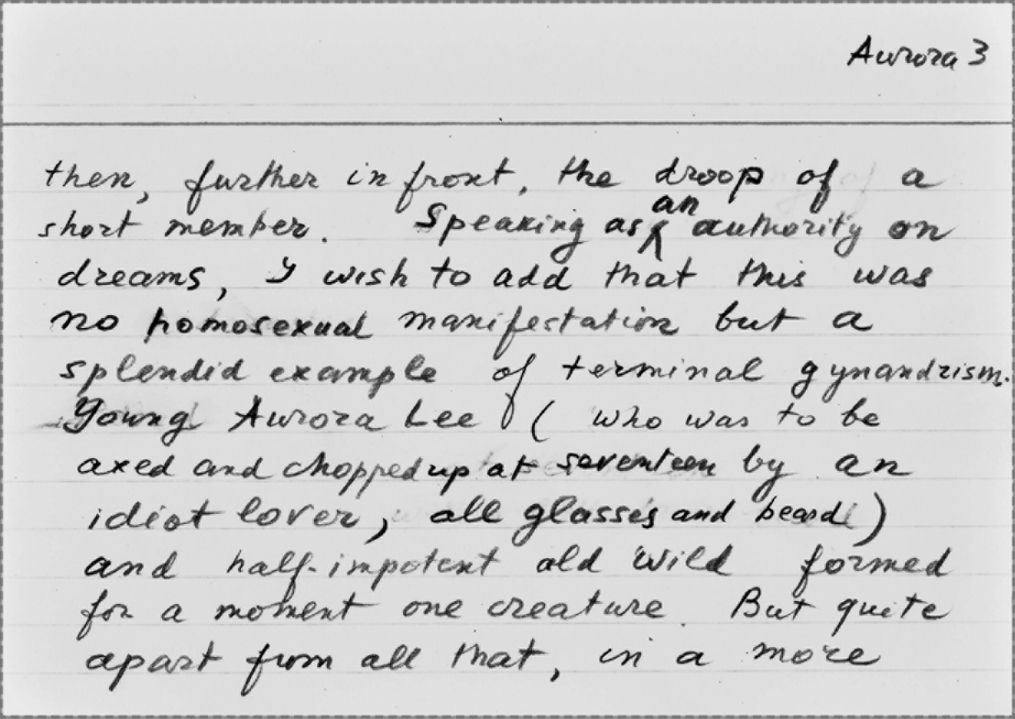 Aurora 3
then, further in front, the droop of a
short member. Speaking as an authority on
dreams, I wish to add that this was
no homosexual manifestation but a
splendid example of terminal gynandrism.
Young Aurora Lee (who was to be
axed and chopped up at seventeen by an
idiot lover, all glasses and beard)
and half-impotent old Wild formed
for a moment one creature. But quite
apart from all that, in a more